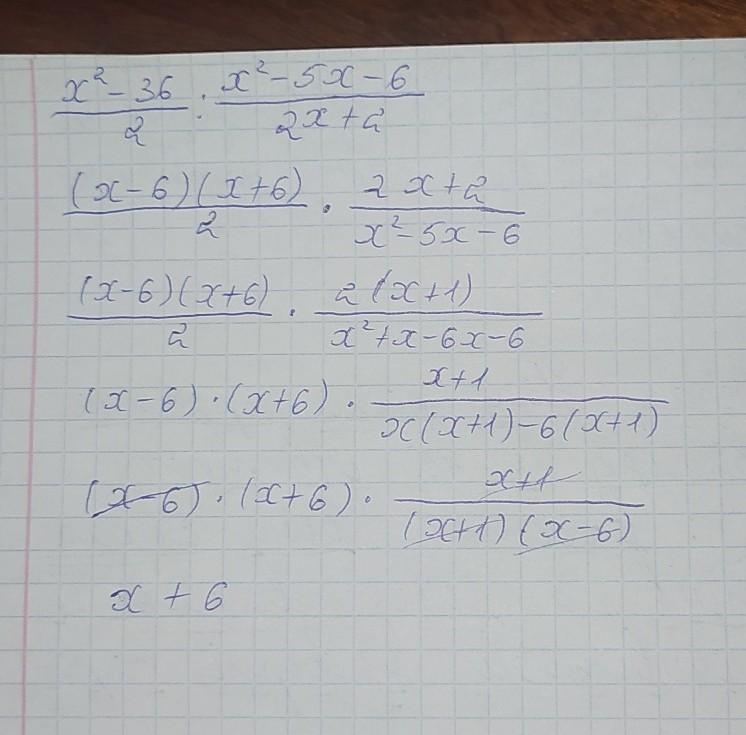 (x²-36)/2 : (x²-5x-6)/(2x+2)
((x-6)(x+6))/2 · (2x+2)/(x²-5x-6)
((x-6)(x+6))/2 · (2(x+1))/(x²+x-6x-6)
(x-6)·(x+6)· (x+1)/(x(x+1)-6(x+1))
(x-6)·(x+6)· (x+1)/((x+1)(x-6))
x+6